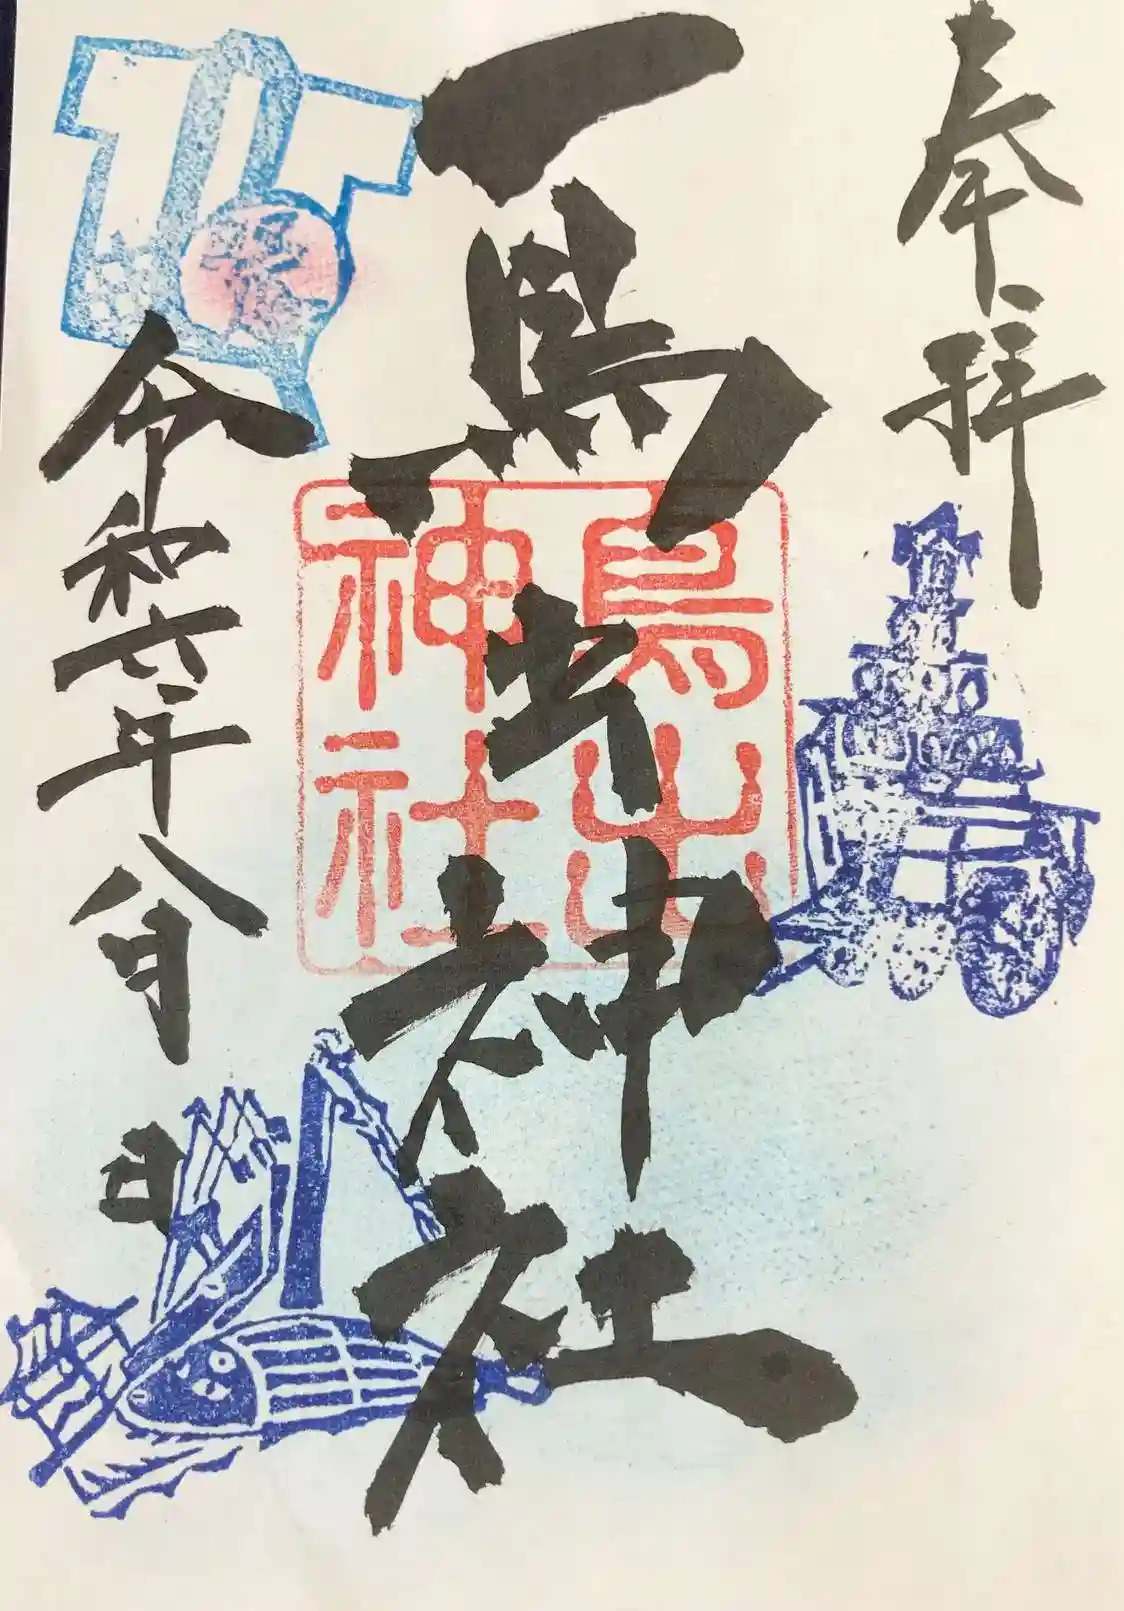 奉拝
鳥出神社
鳥出
神社
令和六年八月 日